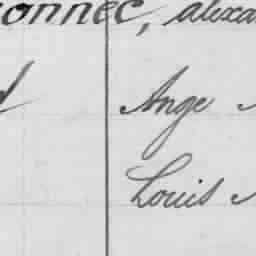 onnec, alexa
Ange
Louis